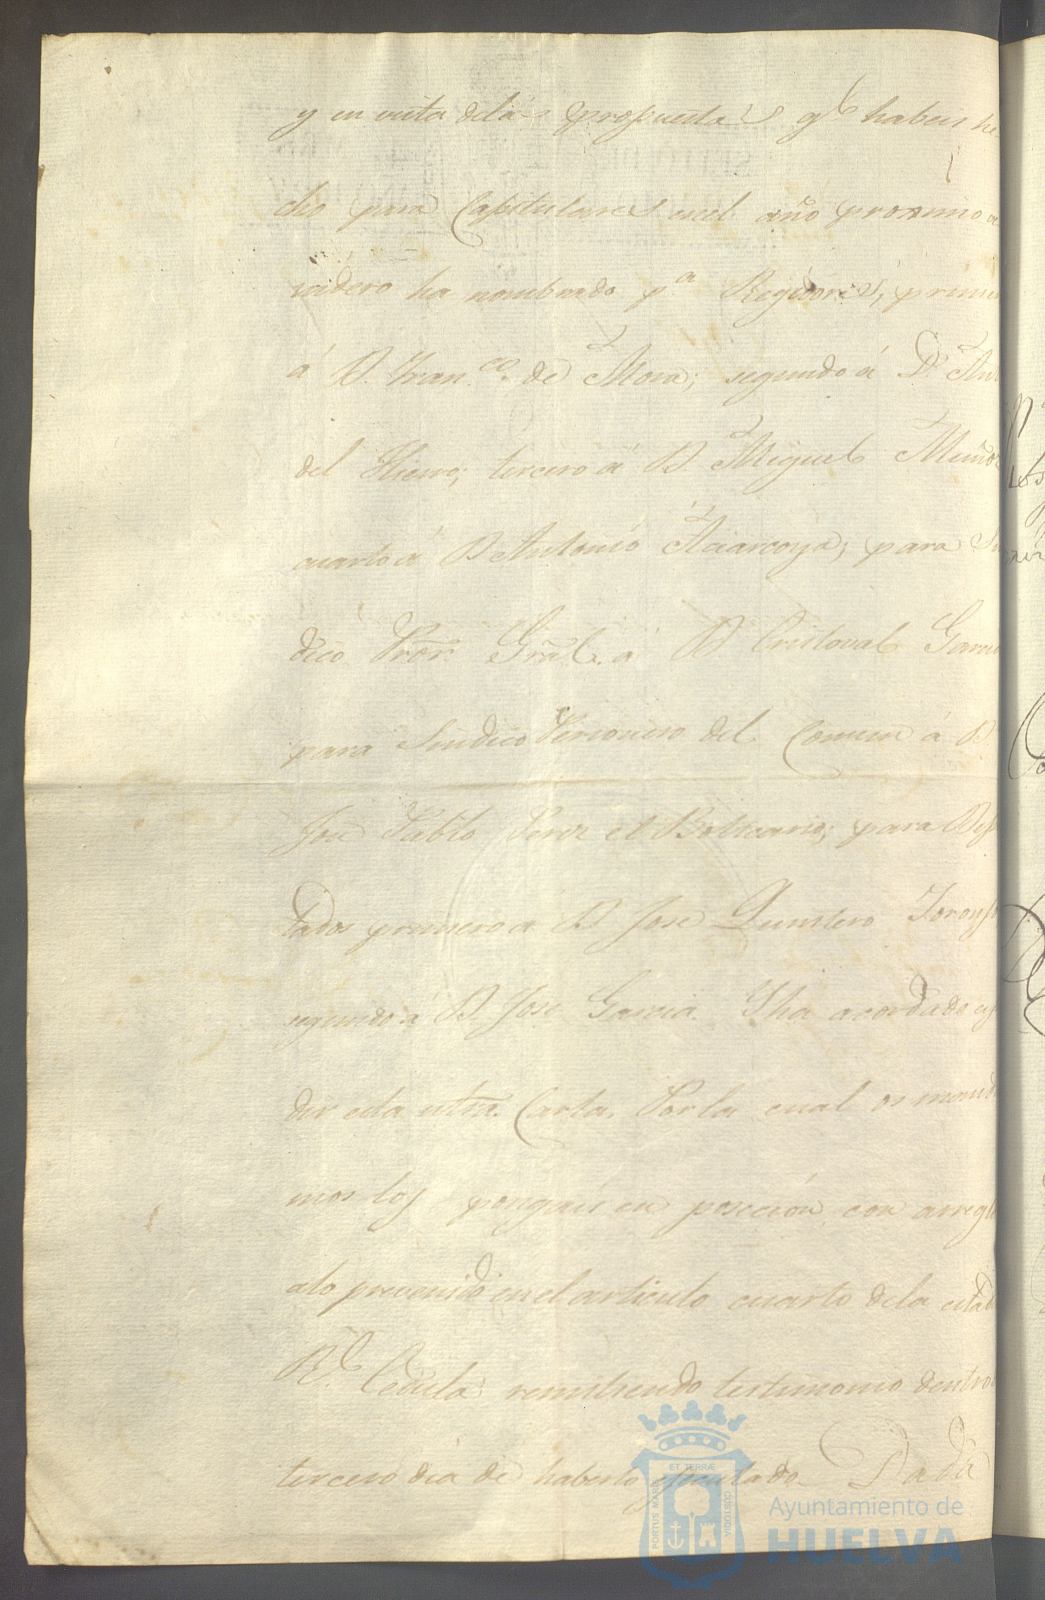 y en vista delas propuestas q.e habeis he
cho para Capitulares en el año proximo a
nidero ha nombrado p.a Regidores, prime
á D. Fran.co de Mora; segundo á D.n Ant
del Hierro; tercero á D. Miguel Muñoz
cuarto á D Antonio Aciarcoya; para Sin
dico Pror. Gral. á D Cristoval Garcia
para Sindico Personero del Comun á D.
José Pablo Perez el Boticario; para Dipu
tados primero a D José Quintero
segundo á D. José Garcia. Y ha acordado espe
dir esta ntra. Carta. Por la cual os manda
mos los pongais en posecion con arreglo
alo prevenido en el articulo cuarto dela citada
R.l Cedula remitiendo testimonio dentro
tercero dia de haberlo ejecutado. Dada
PORTUS MARIS ET TERRÆ CUSTODIA
Ayuntamiento de
HUELVA